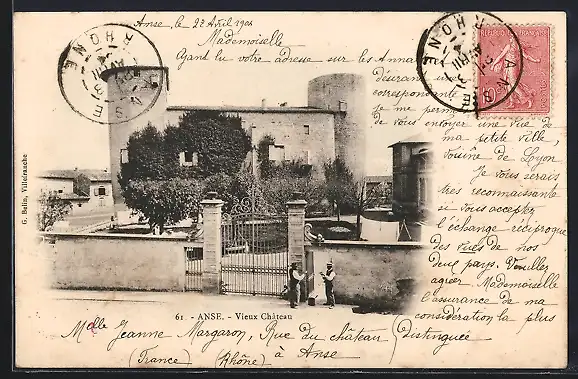 Anse, le 22 Avril 1904
Mademoiselle
Ayant lu votre adresse sur les Anna
Désirant
correspondante
je me perm
de vous envoyer une vue de
ma petite ville,
voisine de Lyon
Je vous serais
très reconnaissante
si vous acceptez
l'échange réciproque
des vues de nos
deux pays. Veuillez
agréer Mademoiselle
l'assurance de ma
considération la plus
distinguée
ANSE
RHONE
ANSE
RHONE
AVRIL
RÉPUBLIQUE FRANÇAISE
G. Belin, Villefranche
61. - ANSE. - Vieux Château
Melle Jeanne Margaron, Rue du château
(France) (Rhône) à Anse